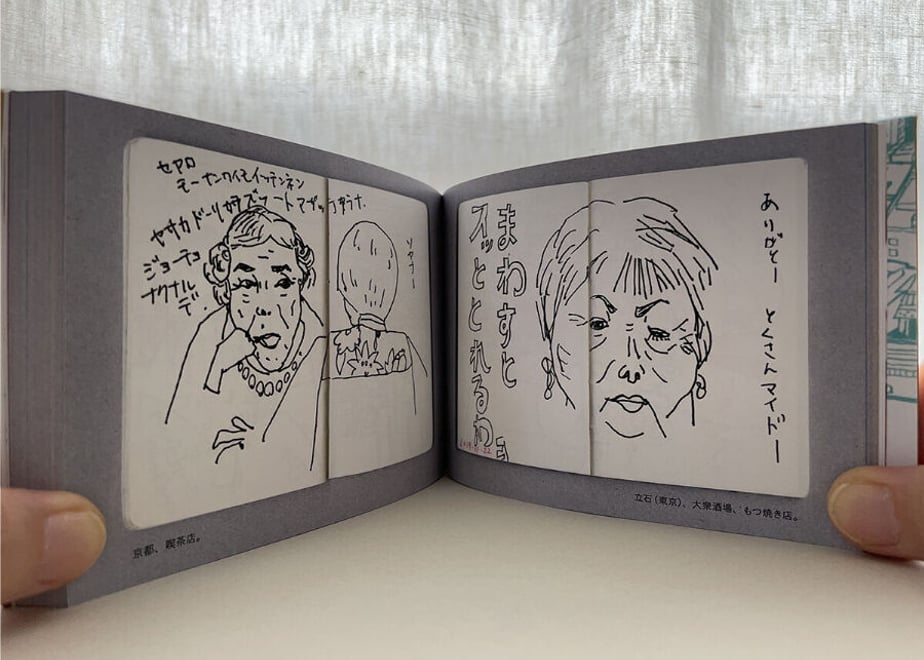 セヤロ
モーナンワイモイッテンネン
ヤサカドーリガ
ジョーチョ
ナクナル
デ.
ソヤナー
京都、喫茶店。
まわすと
スッととれるわ
ありがとー とくさんマイドー
立石（東京）、大衆酒場、もつ焼き店。